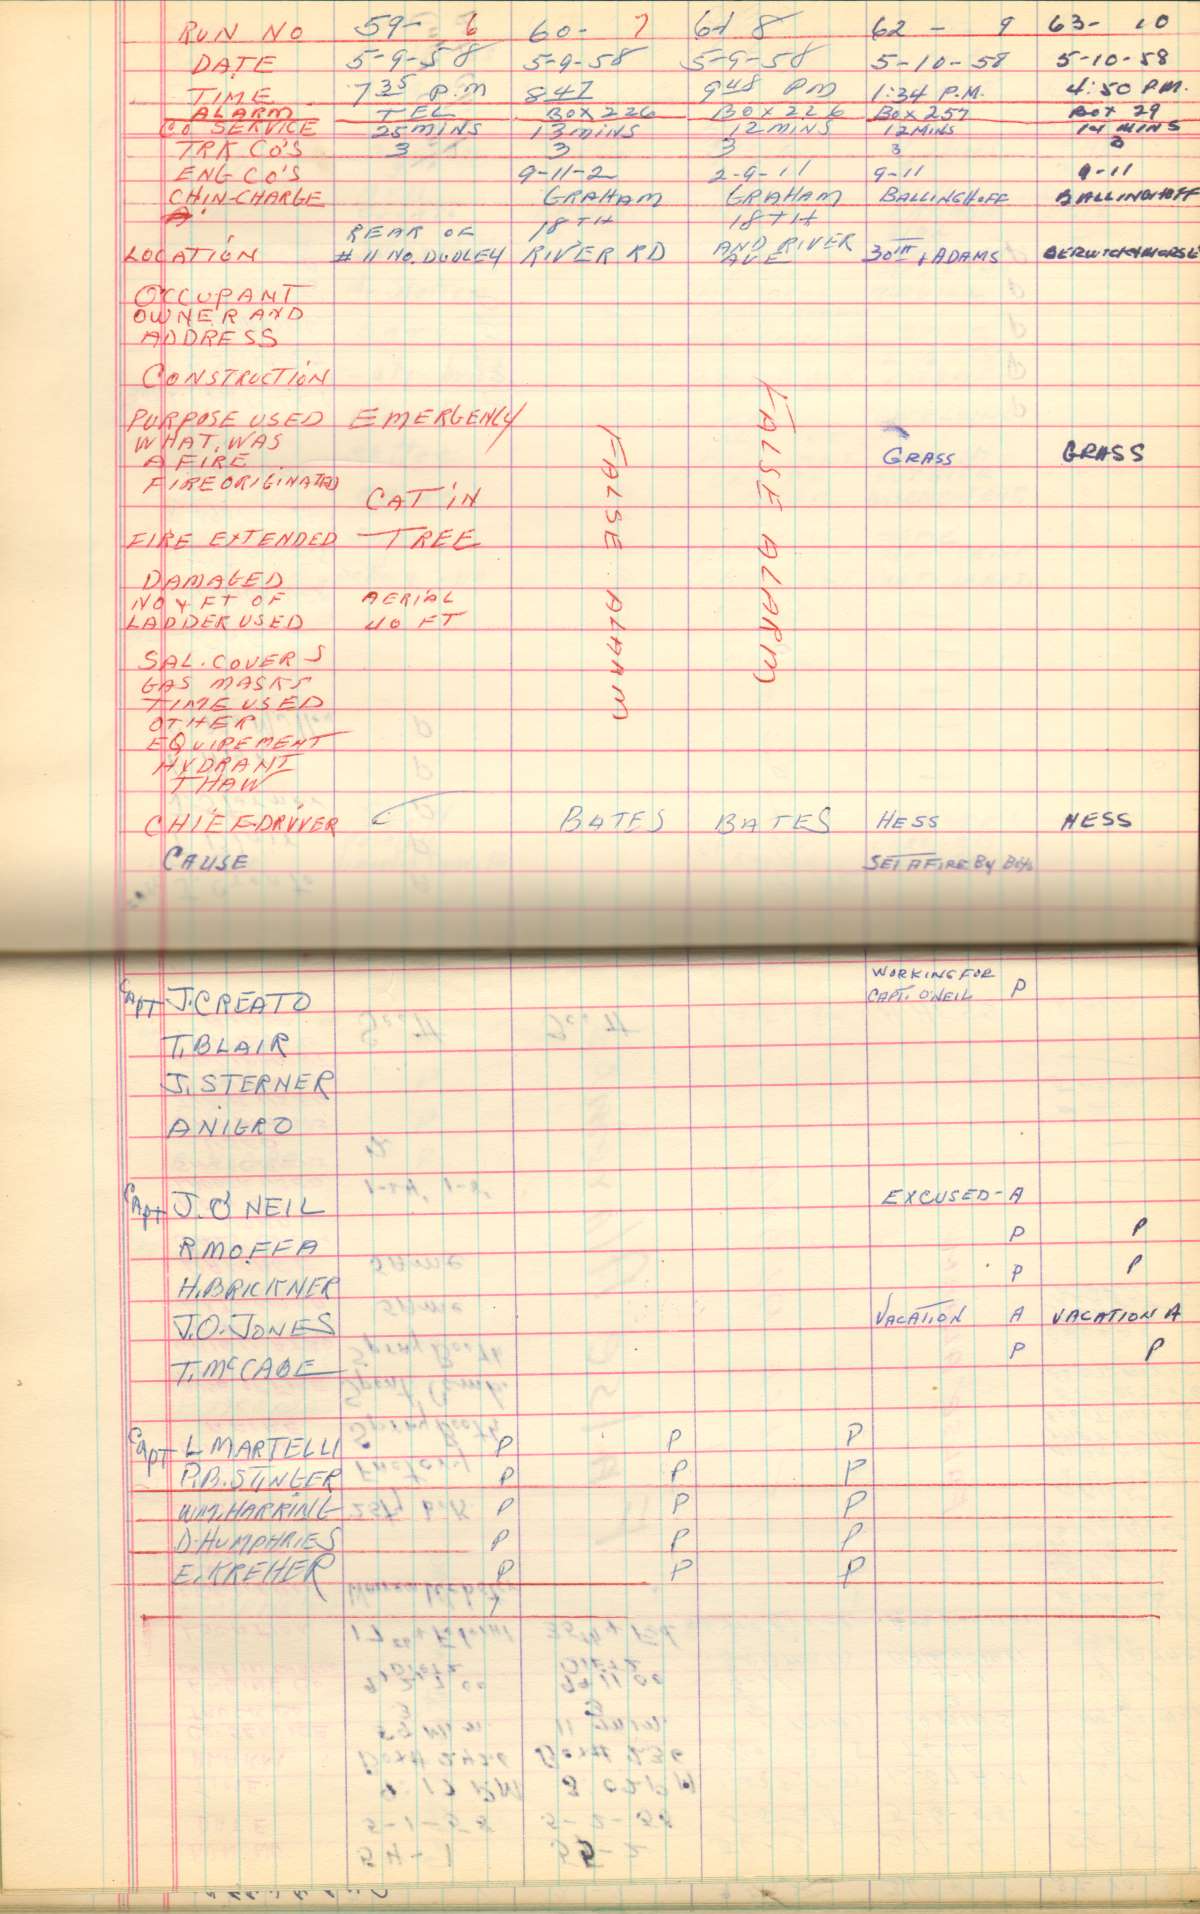 RUN NO 59- 6 60- 7 61 8 62 - 9 63- 10
DATE 5-9-58 5-9-58 5-9-58 5-10-58 5-10-58
TIME 7 35 P.M 8 47 9 48 PM 1:34 P.M. 4:50 P.M.
ALARM TEL BOX 226 BOX 226 BOX 257 BOX 29
CO SERVICE 25 MINS 13 MINS 12 MINS 12 MINS 14 MINS
TRK CO'S 3 3 3 3 3
ENG CO'S 9-11-2 2-9-11 9-11 9-11
CH IN-CHARGE GRAHAM GRAHAM BALLINGHOFF BALLINGHOFF
REAR OF 18TH 18TH
LOCATION # 11 NO. DUDLEY RIVER RD AND RIVER AVE 30TH & ADAMS BERWICK & MORSE
OCCUPANT
OWNER AND
ADDRESS
CONSTRUCTION
PURPOSE USED EMERGENCY
WHAT WAS
A FIRE GRASS GRASS
FIRE ORIGINATED CAT IN
FIRE EXTENDED TREE
FALSE ALARM
FALSE ALARM
DAMAGED
NO & FT OF AERIAL
LADDER USED 40 FT
SAL. COVERS
GAS MASKS
TIME USED
OTHER
EQUIPEMENT
HYDRANT
THAW
CHIEF-DRIVER BATES BATES HESS HESS
CAUSE SET AFIRE By
WORKING FOR
CAPT J. CREATO CAPT. O'NEIL P
T. BLAIR
J. STERNER
A NIGRO
CAPT J. O'NEIL EXCUSED - A
R MOFFA P P
H. BRICKNER P P
J. O. JONES VACATION A VACATION A
T. McCABE P P
CAPT L MARTELLI P P P
P. B. STINGER P P P
WM. HARRING P P P
D. HUMPHRIES P P P
E. KREHER P P P